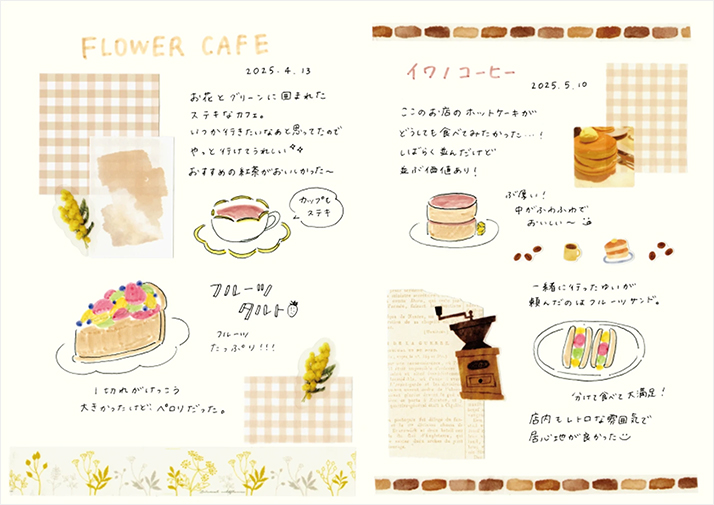 FLOWER CAFE
2025.4.13
お花とグリーンに囲まれた
ステキなカフェ。
いつか行きたいなあと思ってたので
やっと行けてうれしい
おすすめの紅茶がおいしかった〜
カップも
ステキ
フルーツ
タルト
フルーツ
たっぷり!!!
1切れがけっこう
大きかったけど、ペロリだった。
イワノコーヒー
2025.5.10
ここのお店のホットケーキが
どうしても食べてみたかった…!
しばらく並んだけど
並ぶ価値あり!
ぶ厚い!
中がふわふわで
おいしい〜
一緒に行ったゆいが
頼んだのはフルーツサンド。
分けて食べて大満足!
店内もレトロな雰囲気で
居心地が良かった